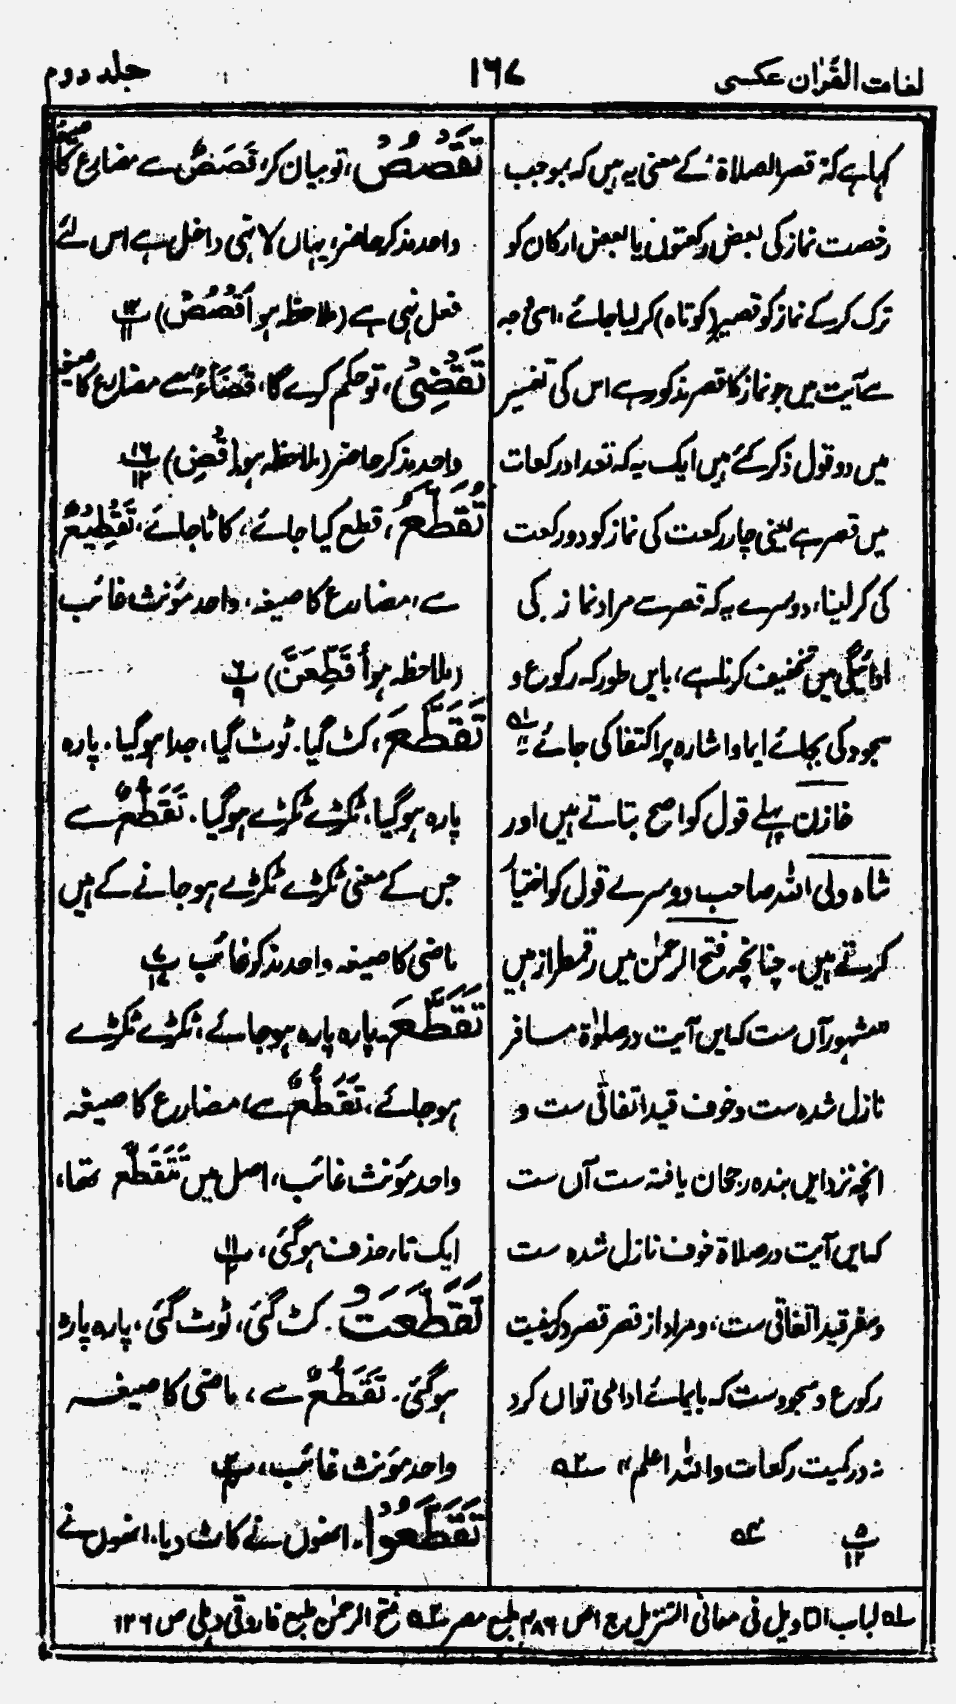 لغات القرآن عکسی
۱۶۷
جلد دوم
کہا ہے کہ قصر الصلاۃ کے معنی یہ ہیں کہ بموجب
رخصت نماز کی بعض رکعتوں یا بعض ارکان کو
ترک کر کے نماز کو قصیر (کوتاہ) کر لیا جائے، اسی وجہ
سے آیت میں جو نماز کا قصر مذکور ہے اس کی تفسیر
میں دو قول ذکر کئے ہیں ایک یہ کہ تعداد رکعات
میں قصر ہے یعنی چار رکعت کی نماز کو دو رکعت
کی کر لینا، دوسرے یہ کہ قصر سے مراد نماز کی
ادائیگی میں تخفیف کرنا ہے، بایں طور کہ رکوع و
سجود کی بجائے ایما و اشارہ پر اکتفا کی جائے لہ
خازن پہلے قول کو اصح بتاتے ہیں اور
شاہ ولی اللہ صاحب دوسرے قول کو اختیار
کرتے ہیں۔ چنانچہ فتح الرحمٰن میں رقمطراز ہیں
"مشہور آں ست کہ ایں آیت در صلوٰۃ مسافر
نازل شدہ ست و خوف قید اتفاقی ست و
انچہ نزد ایں بندہ رجحان یافتہ ست آں ست
کہ ایں آیت در صلاۃ خوف نازل شدہ ست
و سفر قید اتفاقی ست، و مراد از قصر قصر در کیفیت
رکوع و سجود ست کہ بایمائے ادا می تواں کرد
نہ در کمیت رکعات واللہ اعلم" ۲ہ
۵/۱۲
تَقْصُصْ، تو بیان کر، قَصَصٌ سے مضارع کا صیغہ
واحد مذکر حاضر، یہاں لا نہی داخل ہے اس لئے
فعل نہی ہے (ملاحظہ ہو اُقْصُصْ) ۱۲/۱۱
تَقْضِیْ، تو حکم کرے گا، قَضَاءٌ سے مضارع کا صیغہ
واحد مذکر حاضر (ملاحظہ ہو اِقْضِ) ۱۶/۱۲
تُقَطَّعُ، قطع کیا جائے، کاٹا جائے، تَقْطِیْعٌ
سے، مضارع کا صیغہ، واحد مؤنث غائب
(ملاحظہ ہو أُقَطِّعَنَّ) ۶/۹
تَقَطَّعَ، کٹ گیا۔ ٹوٹ گیا، جدا ہو گیا۔ پارہ
پارہ ہو گیا، ٹکڑے ٹکڑے ہو گیا۔ تَقَطُّعٌ سے
جس کے معنی ٹکڑے ٹکڑے ہو جانے کے ہیں
ماضی کا صیغہ واحد مذکر غائب ۷/۱۷
تَقَطَّعَ۔ پارہ پارہ ہو جائے، ٹکڑے ٹکڑے
ہو جائے، تَقَطُّعٌ سے، مضارع کا صیغہ
واحد مؤنث غائب، اصل میں تَتَقَطَّعُ تھا،
ایک تار حذف ہو گئی، ۱۱/۲
تَقَطَّعَتْ۔ کٹ گئی، ٹوٹ گئی، پارہ پارہ
ہو گئی۔ تَقَطُّعٌ سے، ماضی کا صیغہ
واحد مؤنث غائب، ۲/۴
تَقَطَّعُوْا۔ انھوں نے کاٹ دیا۔ انھوں نے
لہ لباب التاویل فی معانی التنزیل ج اص ۴۸۶ طبع مصر ۲ہ فتح الرحمٰن طبع فاروقی دہلی ص ۱۲۶